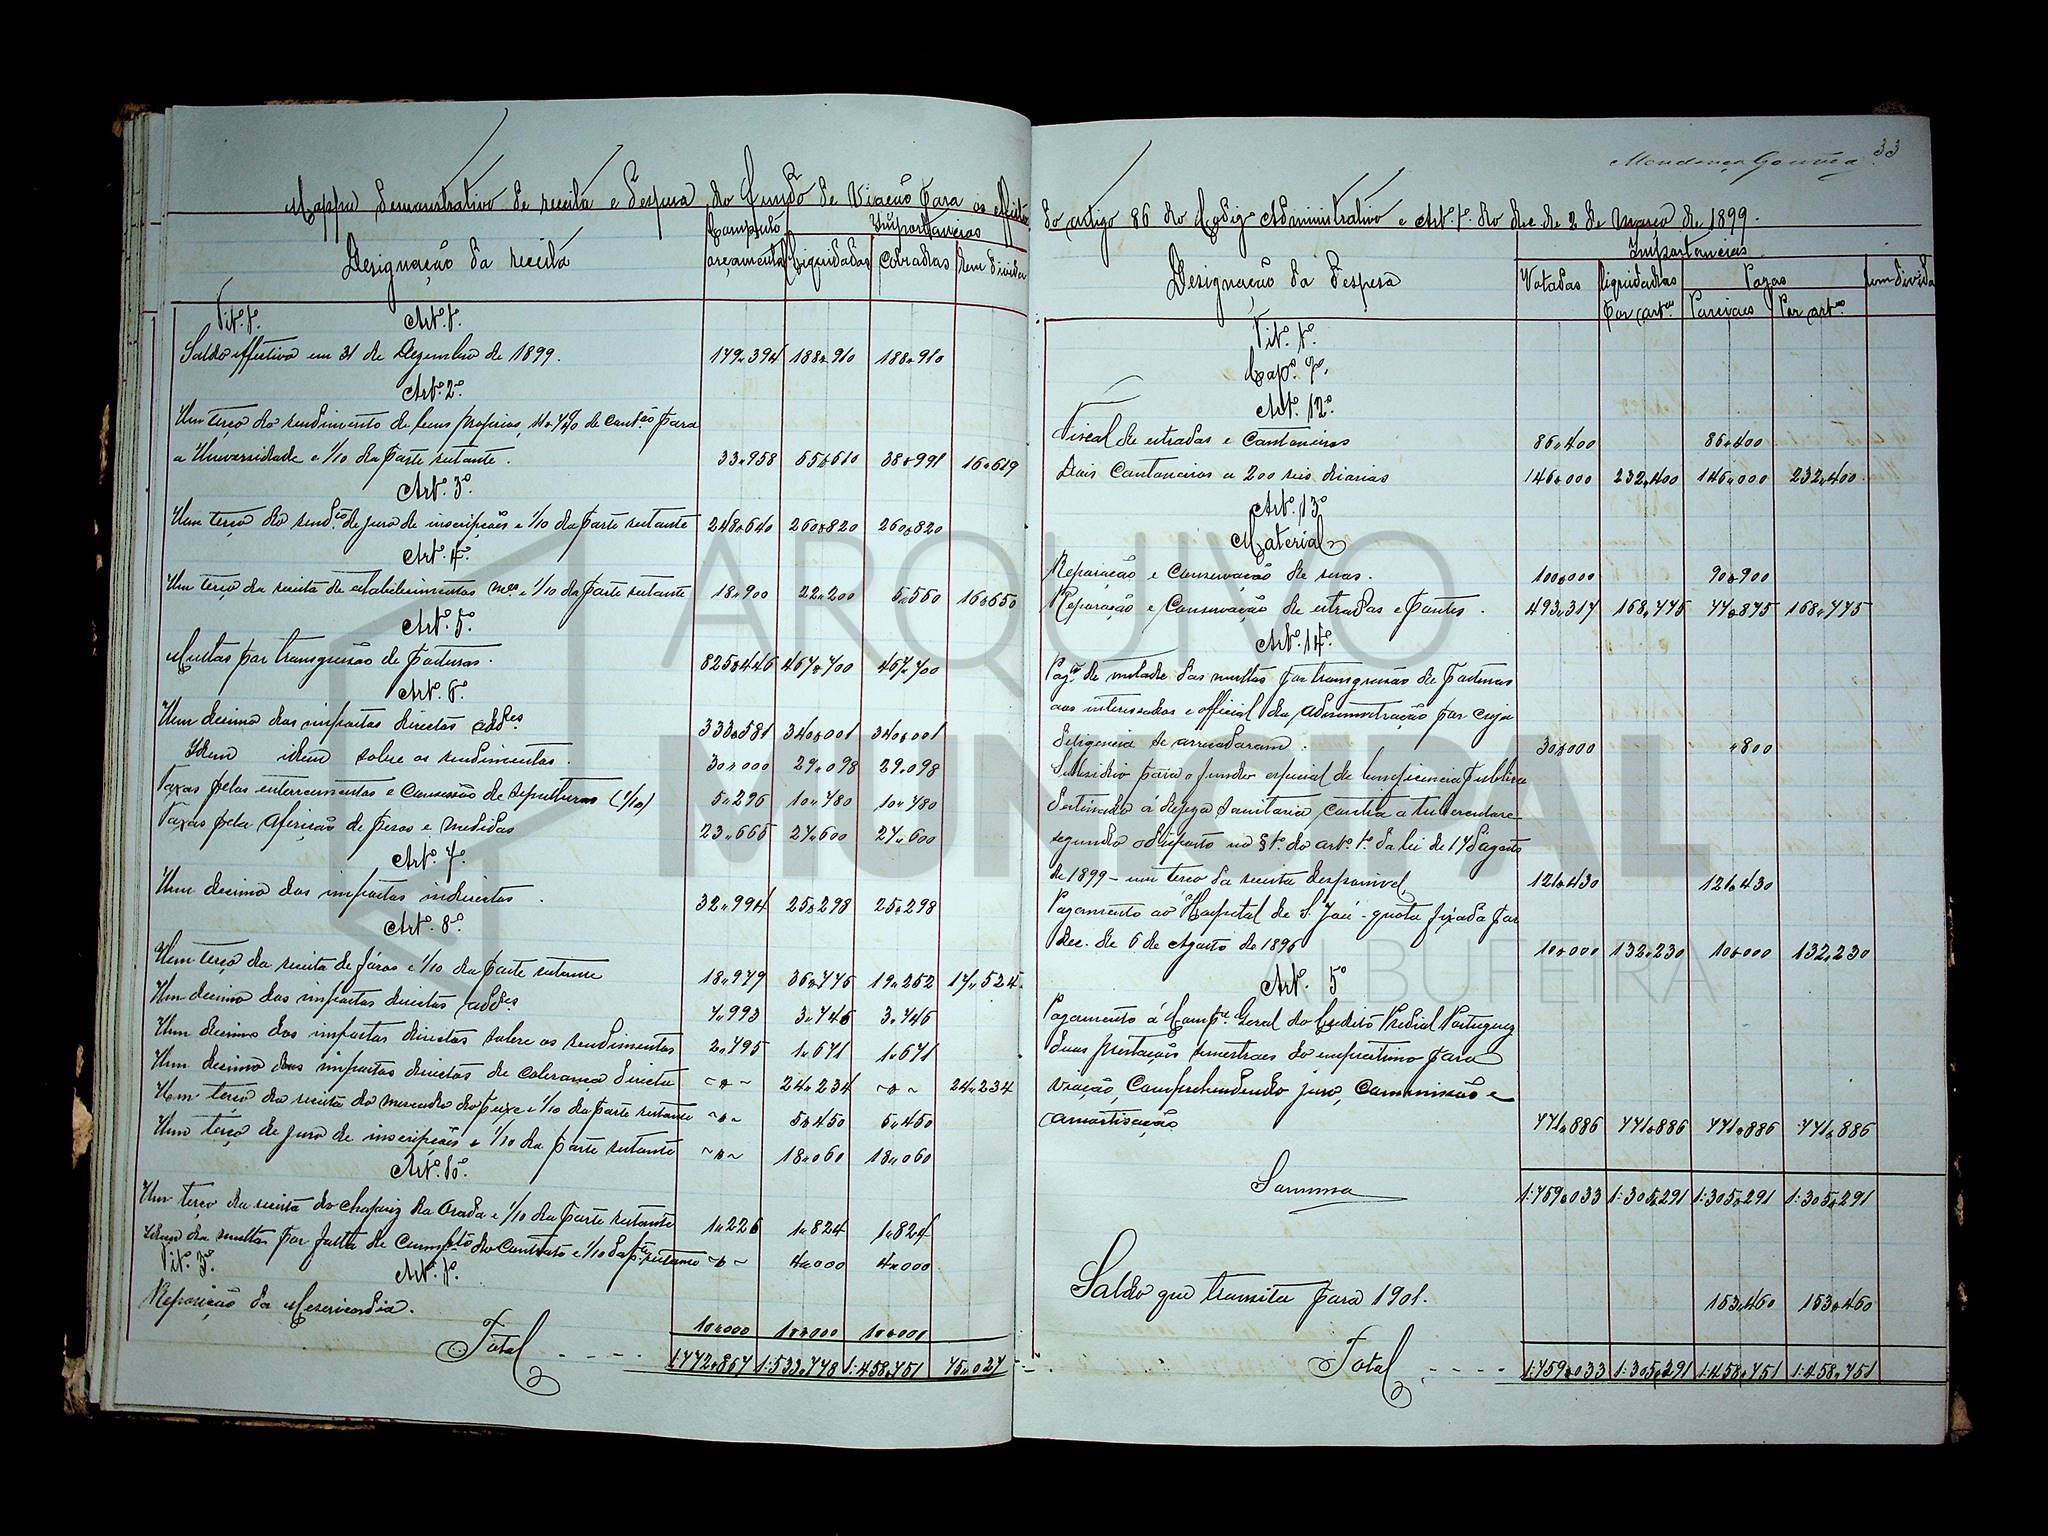 Mappa demonstrativo de receita e despesa do Fundo de Viação para os effeitos
Designação da receita
Computo
orçamental
Importancias
Liquidadas
Cobradas
Em divida
Tit.º 1.º Art.º 1.º
Saldo effectivo em 31 de Dezembro de 1899. 188,910 188,910
Art.º 2.º
Um terço do rendimento de bens proprios, de cont.ão para
a Universidade e 1/10 da parte restante. 33,958 38,991 16,619
Art.º 3.º
Um terço do rend.to de juro de inscripções e 1/10 da parte restante 248,640 260,820 260,820
Art.º 4.º
Um terço da receita de estabelecimentos e 1/10 da parte restante 18,900 22,200 16,650
Art.º 5.º
Multas por transgressão de posturas. 467,400 467,400
Art.º 6.º
Um decimo dos impostos directos add.es 340,001 340,001
Idem idem sobre os rendimentos. 30,000 29,098 29,098
Taxas pelos enterramentos e concessão de sepulturas (1/10) 5,296 10,480 10,480
Taxas pela aferição de pesos e medidas 27,600 27,600
Art.º 7.º
Um decimo dos impostos indirectos. 32,994 25,298 25,298
Art.º 8.º
Um terço da receita de fóros e 1/10 da parte restante 18,979 19,252 17,524
Um decimo dos impostos directos add.es 7,993 3,746 3,746
Um decimo dos impostos directos sobre os rendimentos 2,495 1,671 1,671
Um decimo dos impostos directos de cobrança directa -"- 24,234 -"- 24,234
Um terço da receita do mercado do peixe e 1/10 da parte restante -"- 5,450 5,450
Um terço de juro de inscripções e 1/10 da parte restante -"- 18,060 18,060
Art.º 10.º
Um terço da receita do chafariz da Orada e 1/10 da parte restante 1,226 1,824 1,824
Idem da multas por falta de cump.to do contrato e 1/10 da p.te restante -"- 4,000 4,000
Tit.º 3.º Art.º 1.º
Reposição da Misericordia. 10,000 10,000 10,000
Total 1:772,867 1:533,778 1:458,751 75,027
33
Mendonça Gouvêa
do artigo 86 do Codigo Administrativo e Art.º 1.º do dec. de 2 de março de 1899.
Designação da despesa
Importancias
Votadas
Liquidadas
por art.os
Pagas
Parciaes
Por art.os
Em divida
Tit.º 1.º
Cap.º 7.º
Art.º 12.º
Fiscal de estradas e cantoneiros 86,400 86,400
Dois cantoneiros a 200 reis diarios 146,000 232,400 146,000 232,400
Art.º 13.º
Material
Reparação e conservação de ruas. 100,000 90,900
Reparação e conservação de estradas e pontes. 493,317 168,775 77,875 168,775
Art.º 14.º
Pag.to de metade das multas por transgressão de posturas
aos interessados e official da administração por cuja
deligencia se arrecadaram. 30,000 ,800
Subsidio para o fundo especial de beneficencia publica
destinado á defeza sanitaria contra a tuberculose
segundo o disposto no § 1.º do art.º 1.º da lei de 17 d'agosto
de 1899 - um terço da receita desponivel, 121,430 121,430
Pagamento ao Hospital de S. José - quota fixada por
dec. de 6 de Agosto de 1896 10,000 132,230 10,000 132,230
Art.º 5.º
Pagamento á Comp.a Geral do Credito Predial Portuguez
duas prestações semestraes do emprestimo para
viação, comprehendendo juro, commissão e
amortisação 771,886 771,886 771,886 771,886
Somma 1:759,033 1:305,291 1:305,291 1:305,291
Saldo que transita para 1901. 153,460 153,460
Total 1:759,033 1:305,291 1:458,751 1:458,751
ARQUIVO
MUNICIPAL
ALBUFEIRA